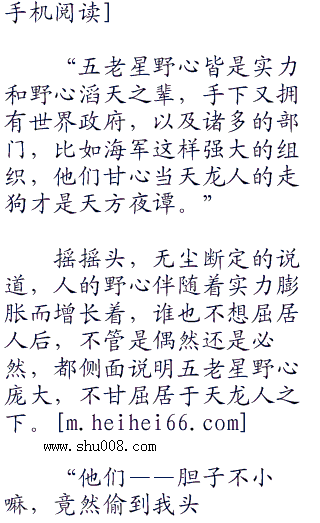 手机阅读]
“五老星野心皆是实力
和野心滔天之辈，手下又拥
有世界政府，以及诸多的部
门，比如海军这样强大的组
织，他们甘心当天龙人的走
狗才是天方夜谭。”
摇摇头，无尘断定的说
道，人的野心伴随着实力膨
胀而增长着，谁也不想屈居
人后，不管是偶然还是必
然，都侧面说明五老星野心
庞大，不甘屈居于天龙人之
下。[m.heihei66.com]
www.shu008.com
“他们——胆子不小
嘛，竟然偷到我头